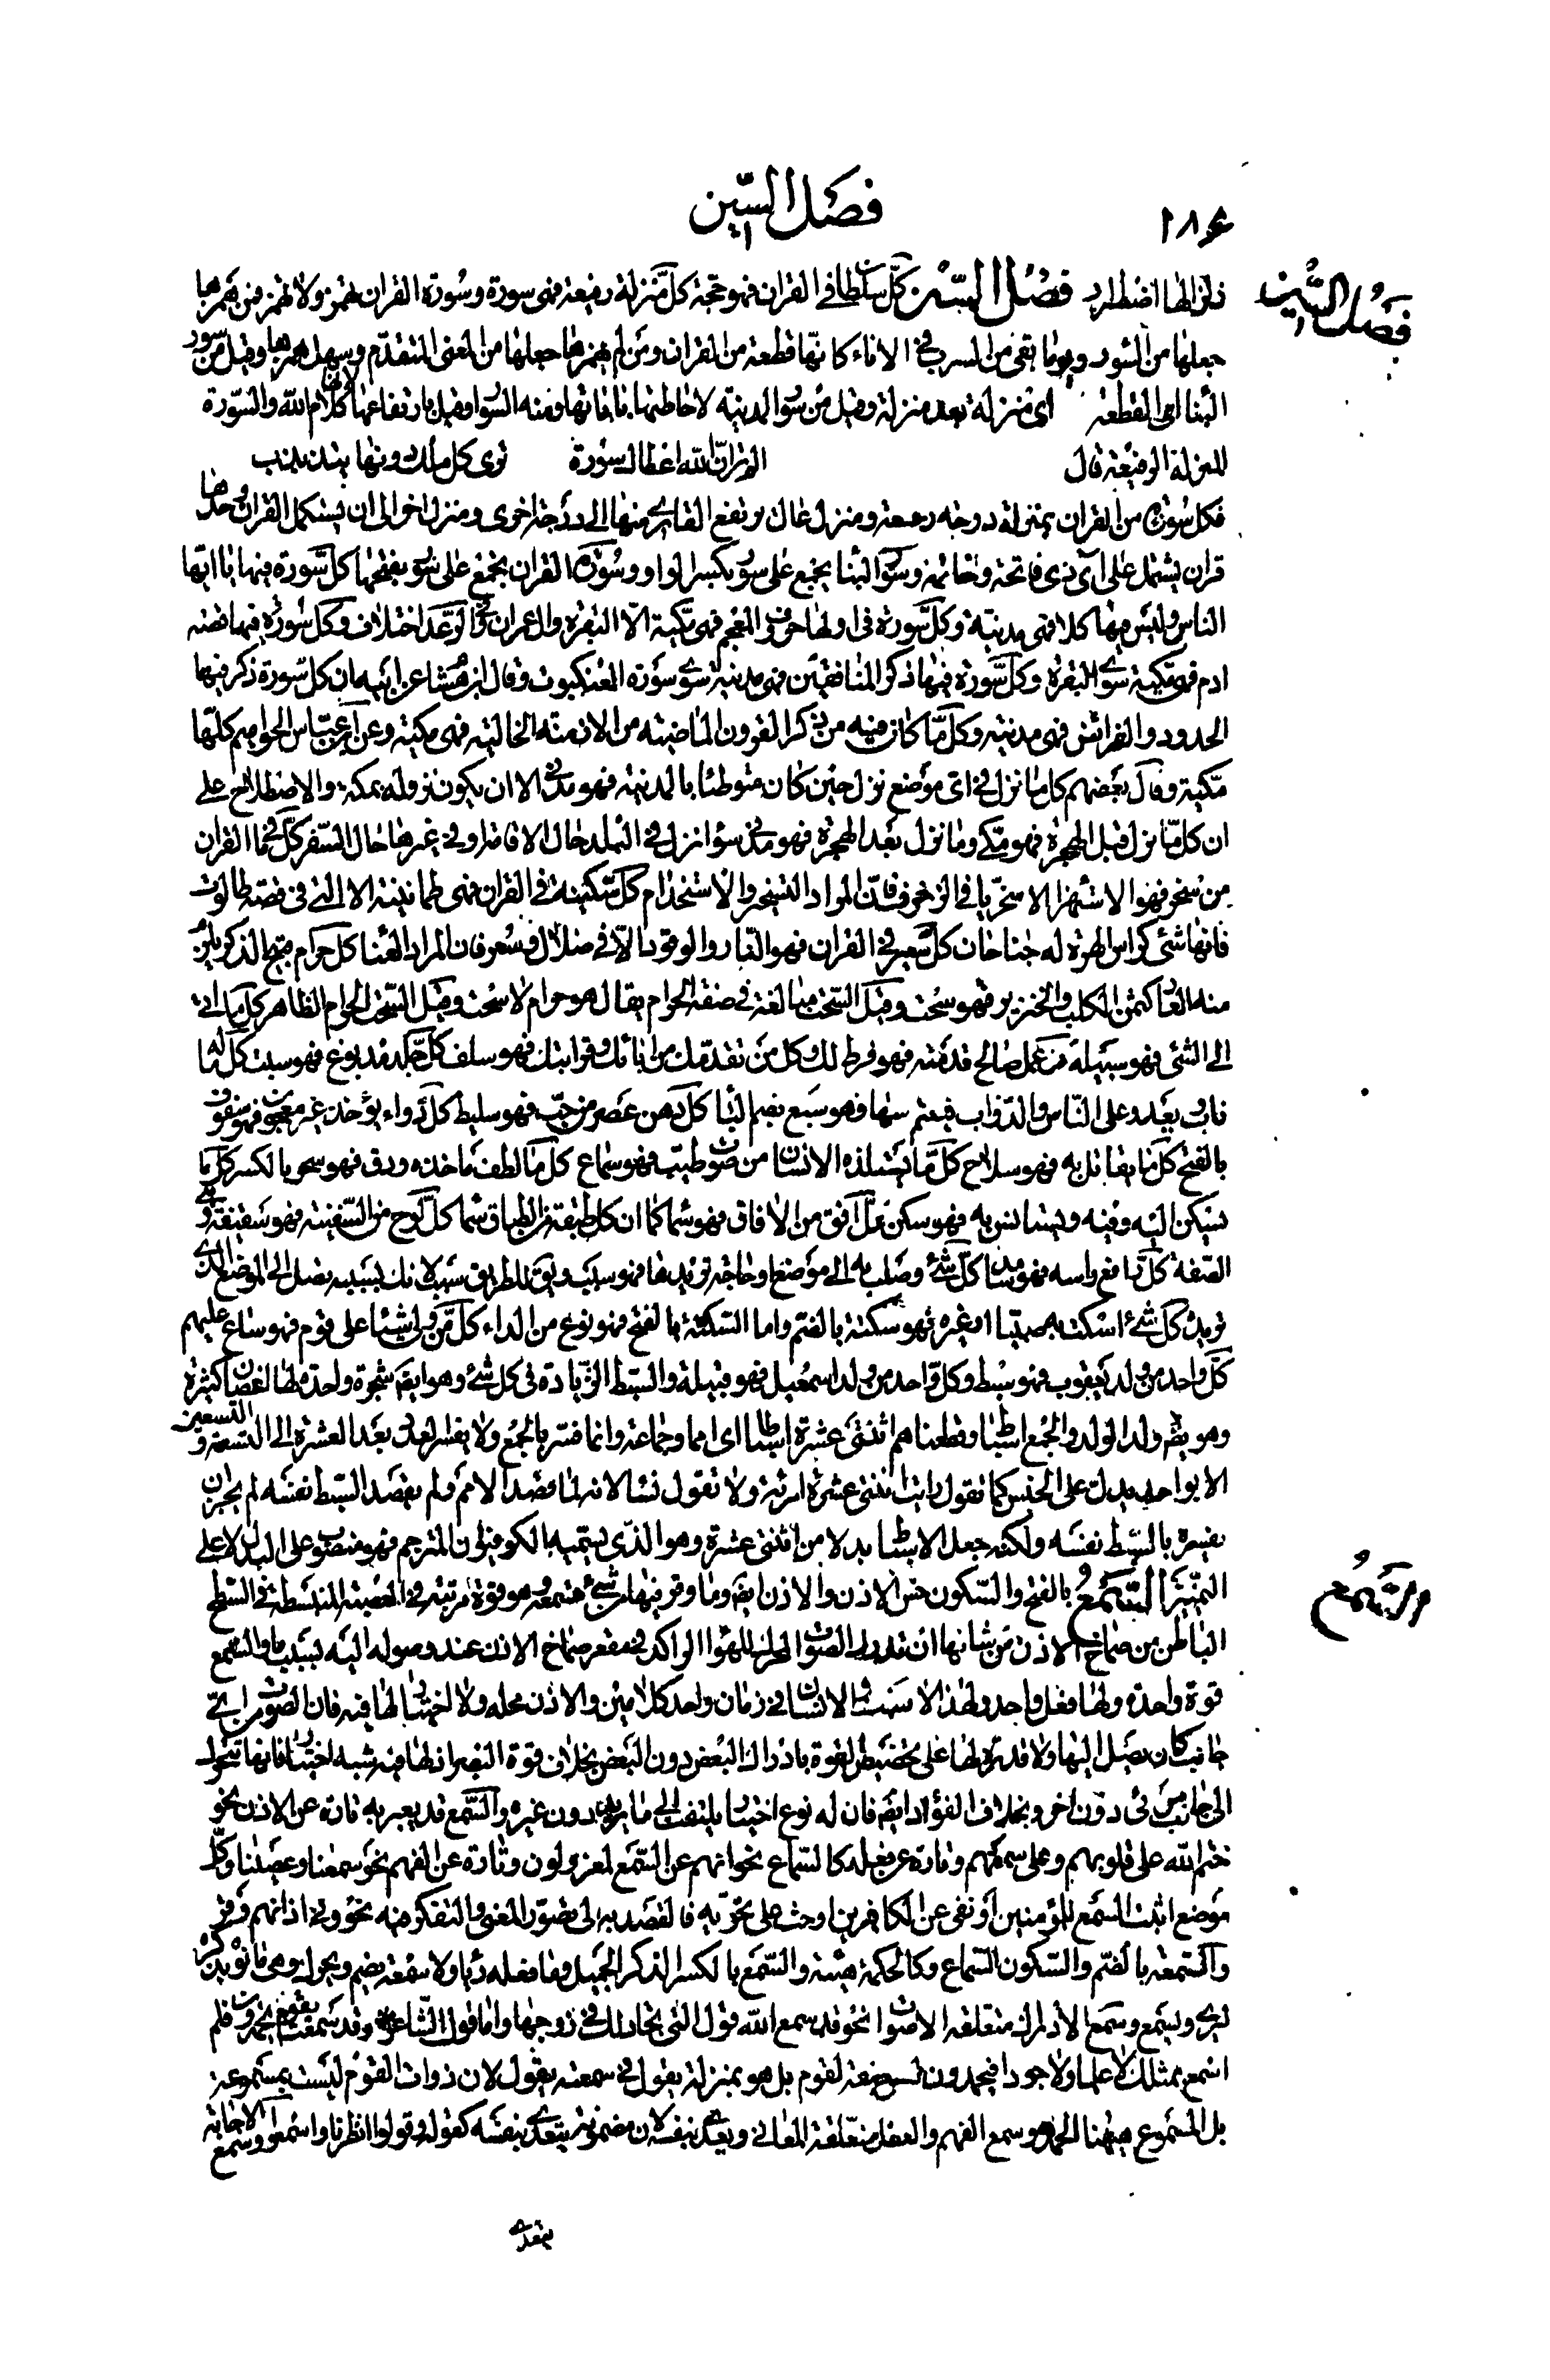 فصل السين
١٨٤
فصل السين
زلزالها اضطراب فصل السين كل سلطان في القران فهو حجة كل منزلة رفيعة فهي سورة وسورة القران تهمز ولا تهمز فمن همزها
جعلها من السور وهو ما بقي من السر في الاناء كانها قطعة من القران ومن لم يهمزها جعلها من المعنى المتقدم وسهل همزها وقيل من سور
البناء اي القطعة منه اي منزلة بعد منزلة وقيل من سور المدينة لاحاطتها باياتها ومنه السوار وقيل لارتفاعها لانها كلام الله والسورة
المنزلة الرفيعة قال الم تر ان الله اعطاك سورة ترى كل ملك دونها يتذبذب
فكل سورة من القران بمنزلة درجة رفيعة ومنزل عال يرتفع القارئ منها الى درجة اخرى ومنزل اخر الى ان يستكمل القران وحدها
قران يشتمل على آي ذي فاتحة وخاتمة وسور البناء يجمع على سور بكسر الواو وسورة القران يجمع على سور بفتحها كل سورة فيها يا ايها
الناس وليس فيها كلا فهي مدنية وكل سورة في اولها حروف المعجم فهي مكية الا البقرة وال عمران وفي الرعد اختلاف وكل سورة فيها قصة
ادم فهي مكية سوى البقرة وكل سورة فيها ذكر المنافقين فهي مدنية سوى سورة العنكبوت وقال ابن هشام عن ابيه ان كل سورة ذكر فيها
الحدود والفرائض فهي مدنية وكل ما كان فيه من ذكر القرون الماضية من الازمنة الخالية فهي مكية وعن ابن عباس الحواميم كلها
مكية وقال بعضهم كل ما نزل في اي موضع نزل حين كان متوطنا بالمدينة فهو مدني الا ان يكون نزوله بمكة والاصطلاح على
ان كل ما نزل قبل الهجرة فهو مكي وما نزل بعد الهجرة فهو مدني سواء نزل في البلد حال الاقامة او في غيرها حال السفر كل ما في القران
من سخر فهو الاستهزاء الا سخريا في الزخرف فان المراد التسخير والاستخدام كل سكينة في القران فهي طمانينة الا التي في قصة طالوت
فانها شئ كراس الهرة له جناحان كل سعير في القران فهو النار والوقود الا في ضلال وسعر فان المراد العناء كل حرام قبيح الذكر يلزم
منه العار كثمن الكلب والخنزير فهو سحت وقيل السحت مبالغة في صفة الحرام يقال هو حرام لا سحت وقيل السحت الحرام الظاهر كل ما يأتي
الى الشئ فهو سبيله كل عمل صالح قدمته فهو فرط لك وكل من تقدمك من ابائك وقرابتك فهو سلف كل جلد مدبوغ فهو سبت كل ما له
ناب ويعدو على الناس والدواب فيفترسها فهو سبع بضم الباء كل دهن عصر من حب فهو سليط كل دواء يؤخذ غير معجون فهو سفوف
بالفتح كل ما يقاتل به فهو سلاح كل ما يستلذه الانسان من صوت طيب فهو سماع كل ما لطف ماخذه ودق فهو سحر بالكسر كل ما
يسكن اليه وفيه ويستانس به فهو سكن كل افق من الافاق فهو سماء كما ان كل طبقة من الطباق سماء كل لوح من السفينة فهو سقيفة وهي
الصفة كل شئ وصلت به الى موضع او حاجة تريدها فهو سبب ويقال للطريق سبب لانك بسببه تصل الى الموضع الذي
تريد كل شئ اسكت به صبيا او غيره فهو سكتة بالضم واما السكتة بالفتح فهو نوع من الداء كل من ولي شيئا على قوم فهو ساع عليهم
كل واحد من ولد يعقوب فهو سبط وكل واحد من ولد اسمعيل فهو قبيلة والسبط الزيادة في كل شئ وهو ايضا شجرة واحدة لها اغصان كثيرة
وهو ايضا ولد الولد والجمع اسباط وقطعناهم اثنتي عشرة اسباطا اي امما وجماعة وانما فسر بالجمع ولا يفسر العدد بعد العشرة الى التسعة والتسعين
الا بواحد يدل على الجنس كما تقول رايت اثنتي عشرة امراة ولا تقول نساء لانه لما قصد الامم ولم يقصد السبط نفسه لم يجز ان
يفسره بالسبط نفسه ولكنه جعل الاسباط بدلا من اثنتي عشرة وهو الذي يسميه الكوفيون المترجم فهو منصوب على البدل لا على
التمييز السمع بالفتح والسكون حس الاذن والاذن ايضا وما وقر فيها من شئ تسمعه وهو قوة مرتبة في العصبة المنبسطة في السطح
السمع
الباطن من صماخ الاذن من شانها ان تدرك الصوت المحرك للهواء الراكد في مقعر صماخ الاذن عند وصوله اليه بسبب ما والسمع
قوة واحدة ولها فعل واحد ولهذا لا يضبط الانسان في زمان واحد كلامين والاذن محله ولا اختيار لها فيه فان الصوت من اي
جانب كان يصل اليها ولا قدرة لها على تخصيص القوة بادراك البعض دون البعض بخلاف قوة البصر اذ لها فيه شبه اختيار فانها تتحرك
الى جانب مرئي دون اخر وبخلاف الفؤاد ايضا فان له نوع اختيار يلتفت الى ما يريد دون غيره والسمع قد يعبر به تارة عن الاذن نحو
ختم الله على قلوبهم وعلى سمعهم وتارة عن فعله كالسماع نحو انهم عن السمع لمعزولون وتارة عن الفهم نحو سمعنا وعصينا وكل
موضع اثبت السمع للمؤمنين او نفى عن الكافرين او حث على تحريه فالقصد به الى تصور المعنى والتفكر فيه نحو وفي اذانهم وقر
والسمعة بالضم والسكون السماع وكالحكمة هيئة والسمع بالكسر الذكر الجميل وما فعله رئاء ولا سمعة بضم ويحرك وهي ما نوه بذكره
ليرى ويسمع وسمع الادراك متعلقه الاصوات نحو قد سمع الله قول التي تجادلك في زوجها واما قول الشاعر وقد سمعت بقوم يحمدون فلم
اسمع بمثلك لا علما ولا جودا فيحمدون ليس صفة لقوم بل هو بمنزلة يقول في سمعته يقول لان ذوات القوم ليست بمسموعة
بل المسموع ههنا الحمد وسمع الفهم والعقل متعلقه المعاني ويتعدى بنفسه لان مضمونه يتعدى بنفسه كقوله وقولوا انظرنا واسمعوا وسمع الاجابة
يتعدى